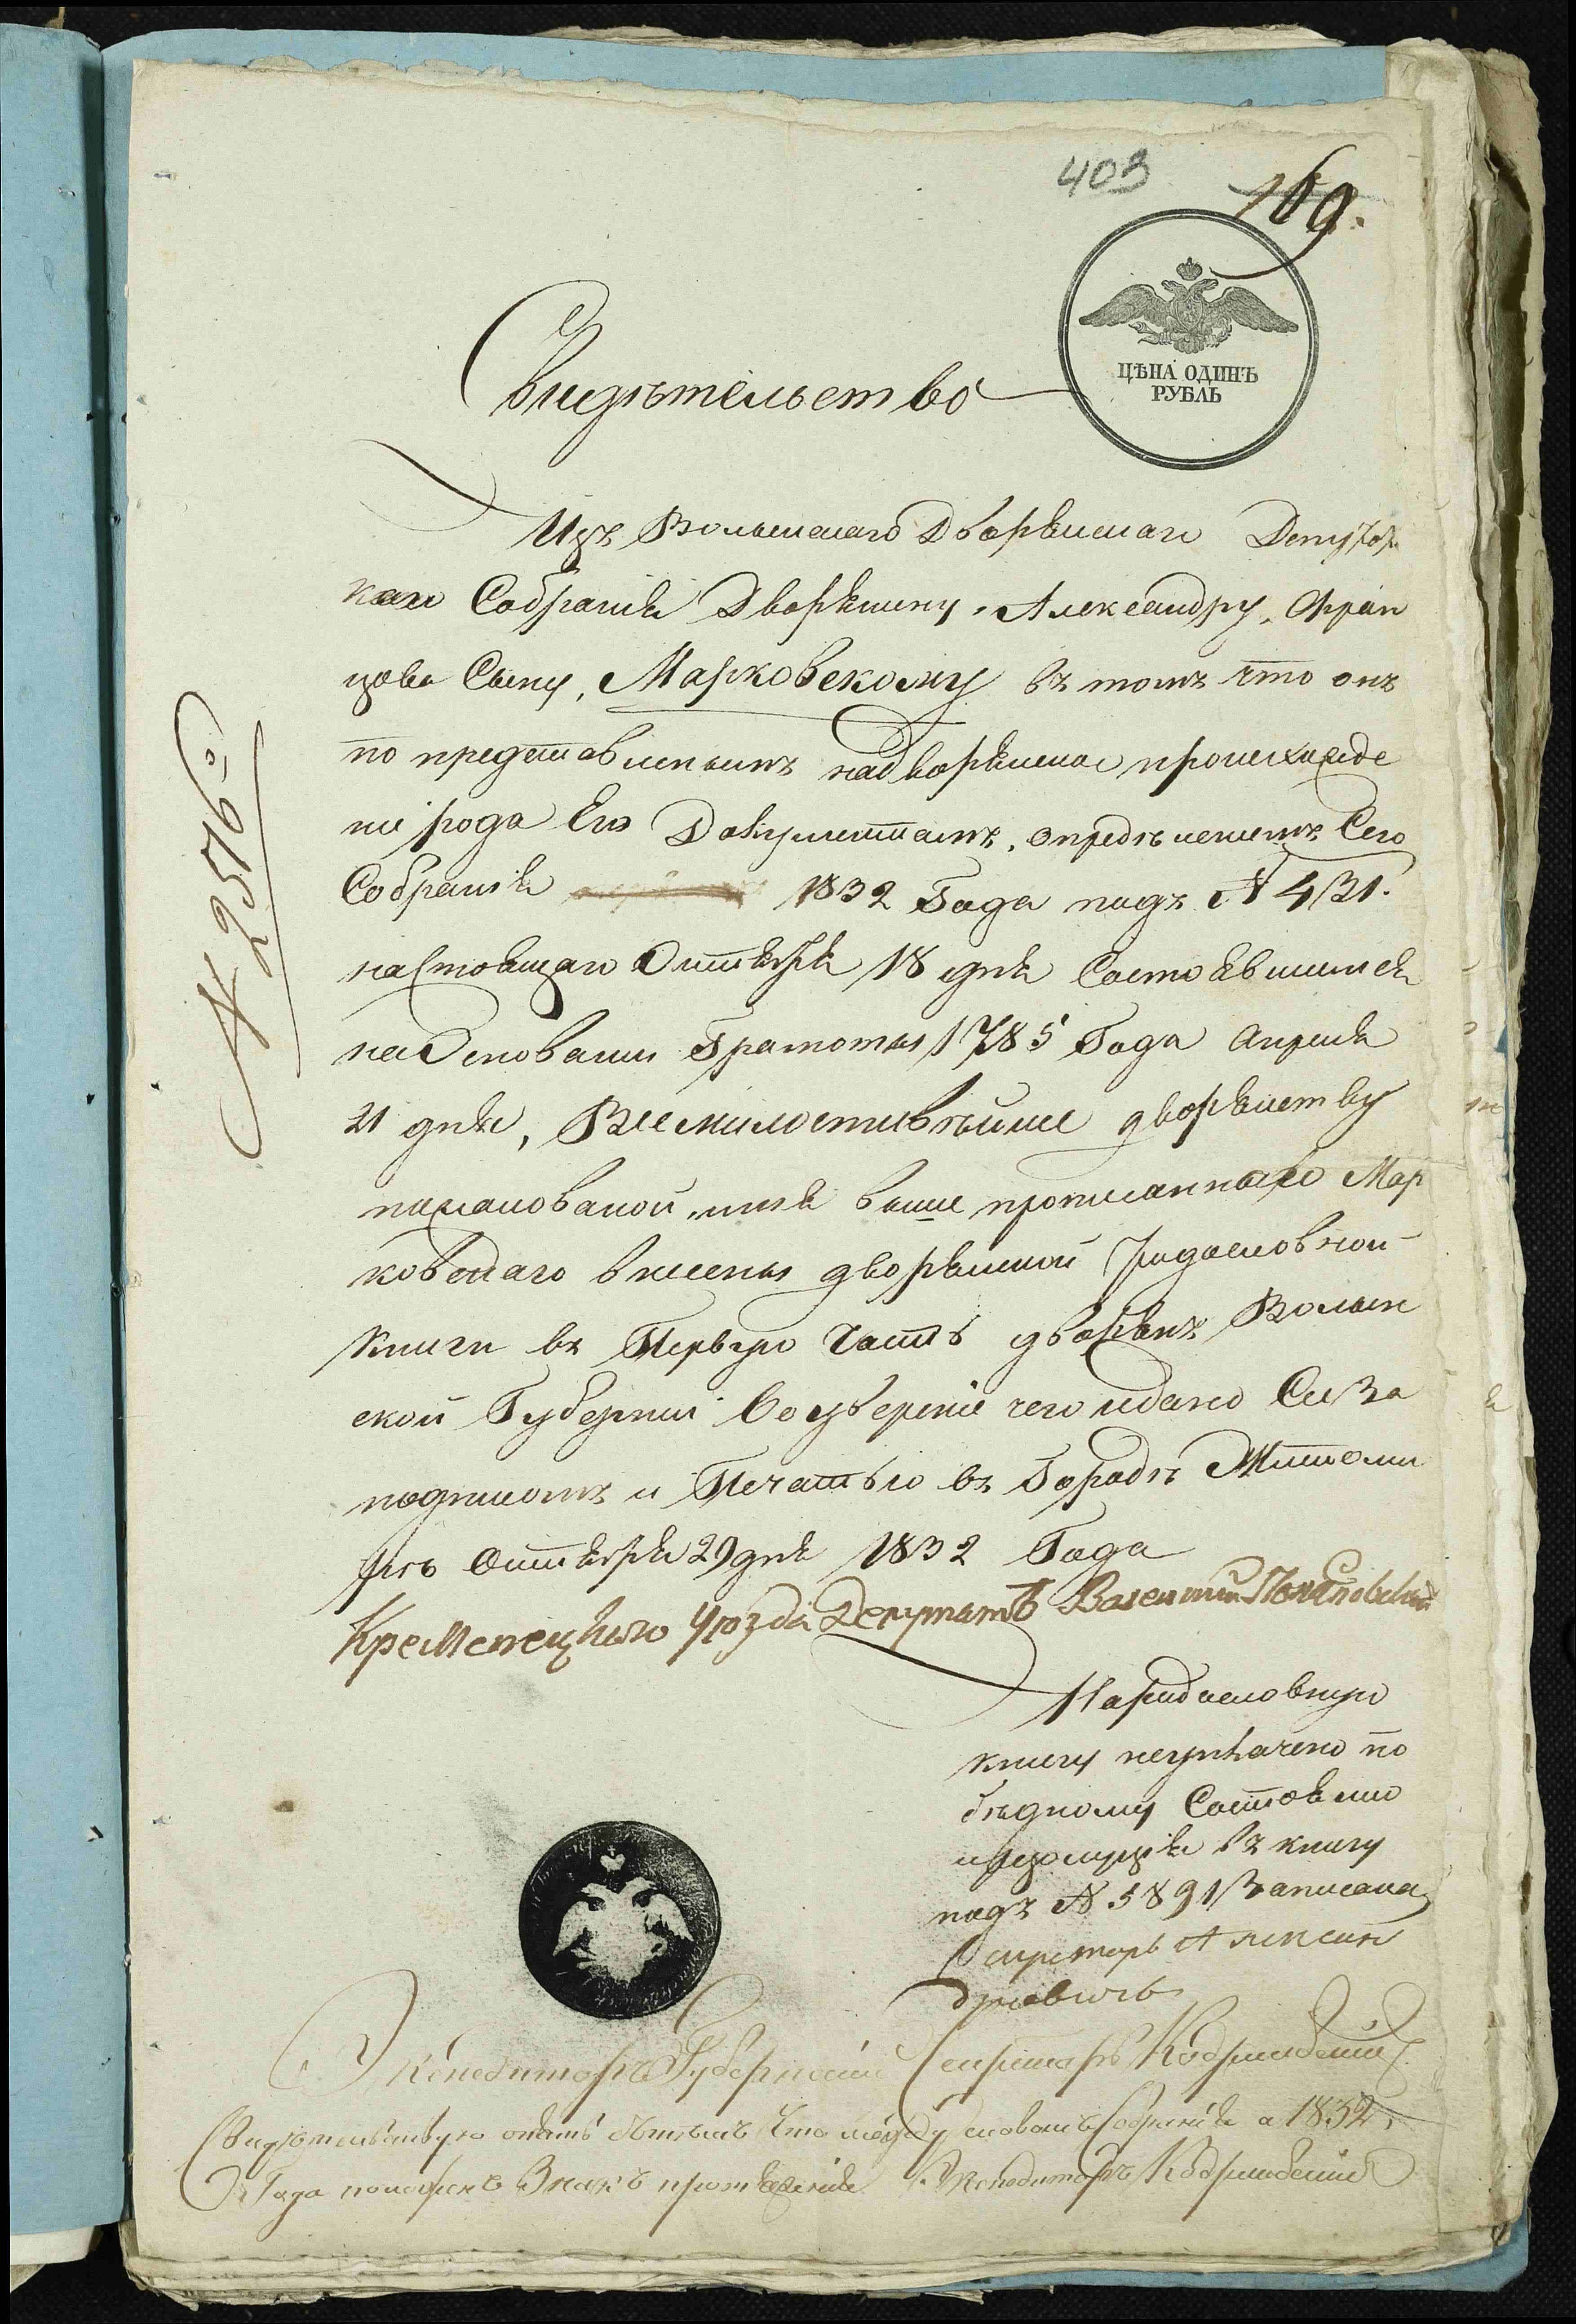 403
169.
ЦѢНА ОДИНЪ
РУБЛЬ
Свидѣтельство
№ 2576
Изъ Волынскаго Дворянскаго Депутат
скаго Собранія Дворянину, Александру, Фран
цова Сыну, Марковскому въ томъ что онъ
по представленымъ на дворянское происхожде
ніе рода Его Документамъ, опредѣленіемъ Сего
Собранія 1832 Года подъ № 431.
настоящаго Октября 18 дня Состоявшимся
на Основаніи Грамоты 1785 Года Апреля
21 дня, Всемилостивѣйше дворянству
пожалованой, имя выше прописаннаго Мар
ковскаго внесены дворянской родословной
книги въ Первую Часть дворянъ Волын
ской Губерніи. Во увереніе чего и дано Сие За
подписомъ и Печатью въ Городѣ Житоми
рѣ Октября 29 дня 1832 Года
Кременецкаго Уѣзда Депутатъ Валентин
На родословную
книгу неуплачено по
бѣдному Состоянию
въ книгу
подъ № 5891 Записана
Секретарь Алексан
дровичъ
Экспедиторъ Губернскій Секретарь
Свидѣтельствую опять Что между словами Собранія и 1832
Года Знакъ Экспедиторъ